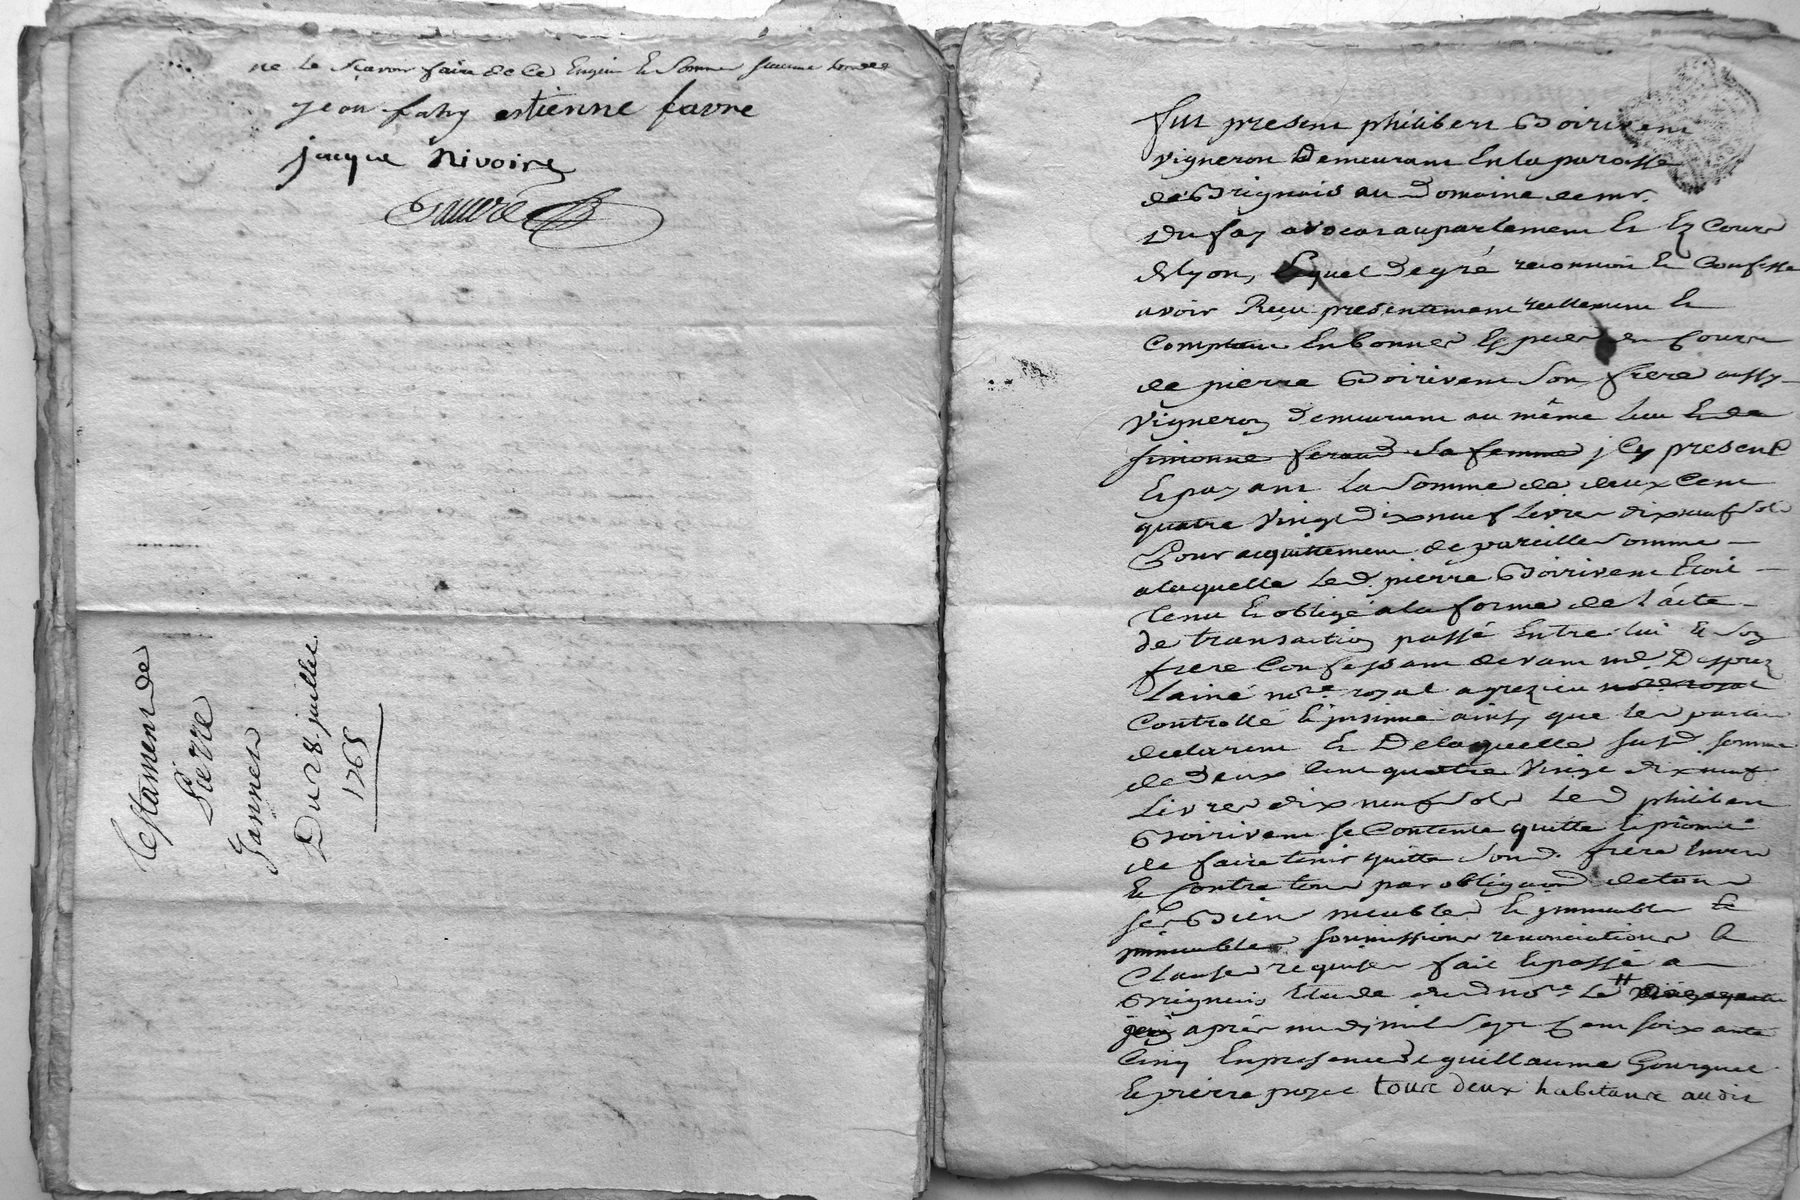 ne le sçavoir faire de ce Enquis et Sommé
jean faby estienne favre
jacque nivoire
Testament de
Pierre
Jannez
Du 28 juillet
1765
fut present philibert Boirivent
vigneron Demeurant En la paroisse
de Brignais au Domaine de mr.
Du fay avocat au parlement et Es Cours
de lyon, Lequel De gré reconnoit et Confesse
avoir Reçu presentement reellement et
Comptant En bonnes Especes de Cours
de pierre Boirivent Son frere aussy
vigneron demeurant au même lieu et de
simonne feraud sa femme jcy present
et payant la Somme de deux Cent
quatre vingt dix neuf Livres dix neuf sols
Pour acquittement de pareille Somme
a laquelle led. pierre Boirivent Etoit
tenu et obligé a la forme de l'acte
de transaction passé Entre lui et Son
frere Confessant devant me. Desprez
lainé nore. royal a grezieu nore. royal
Controllé et jnsinué ainsy que les parties
declarent et De laquelle susd. somme
de Deux Cent quatre Vingt dix neuf
Livres dix neuf sols led philibert
Boirivent se Contente quitte et promet
de faire tenir quitte Sond. frere Envers
et Contre tous par obligation de tous
ses Biens meubles et jmmeubles et
jmmeubles soumissions renonciations et
Clauses requises fait et passé a
Brignais Etude dud nore. Le
apres midy mil Sept Cent soixante
Cinq En presence de guillaume Gourguet
et pierre tous deux habitans audit